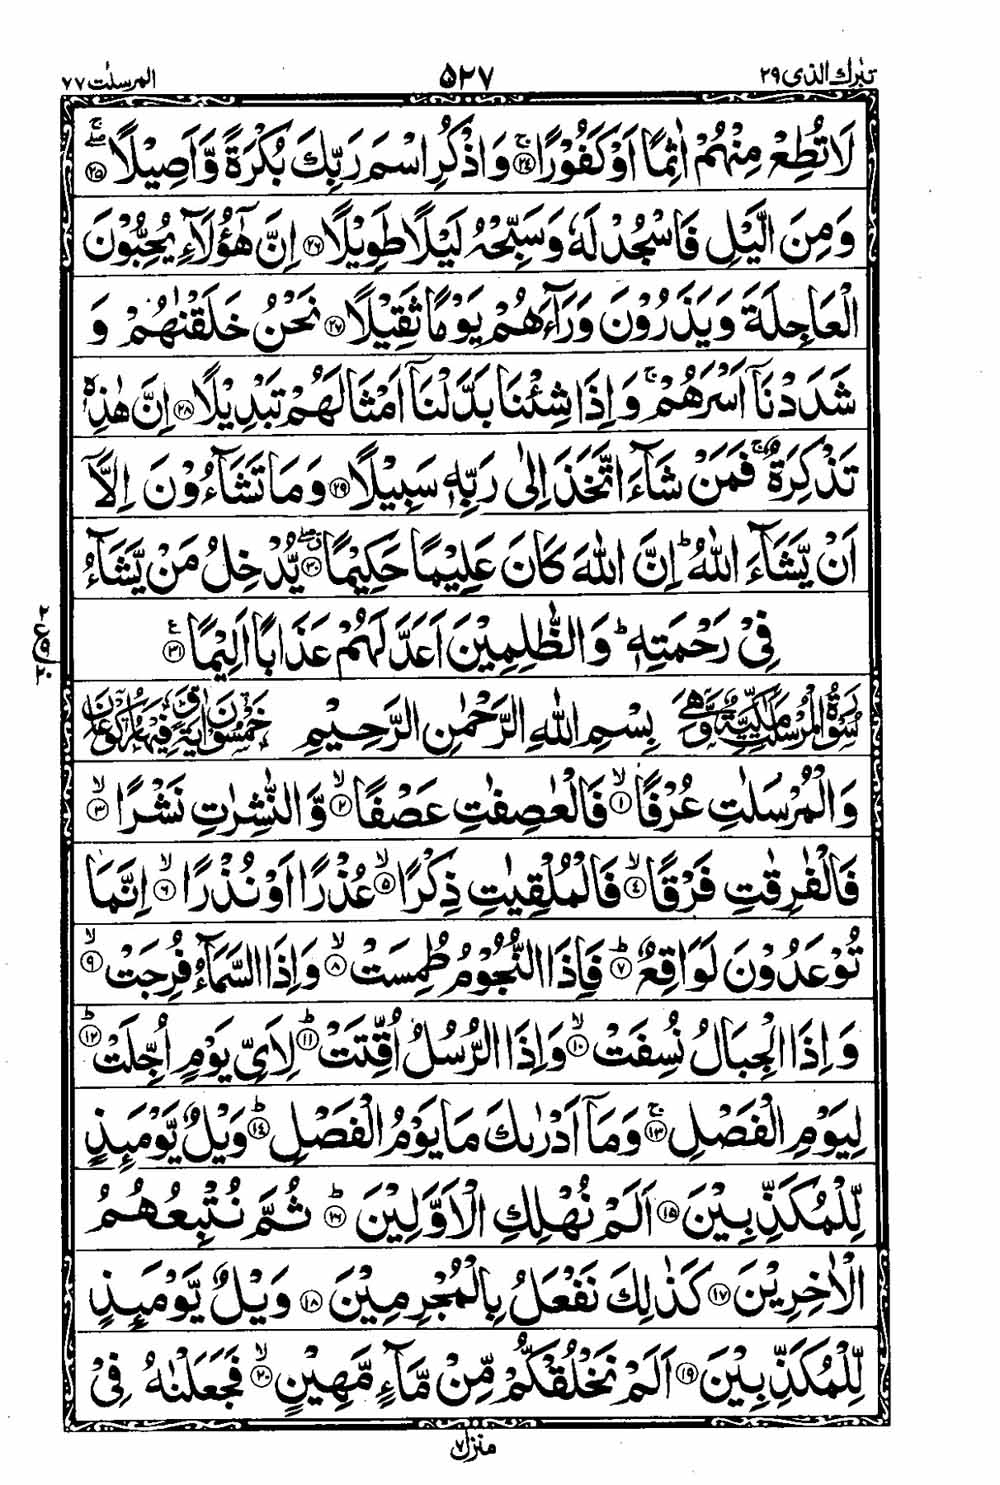 تبٰرك الذی ۲۹
۵۲۷
المرسلٰت ۷۷
لَا تُطِعْ مِنْهُمْ اٰثِمًا اَوْ كَفُوْرًا ۚ﴿۲۴﴾ وَ اذْكُرِ اسْمَ رَبِّكَ بُكْرَةً وَّ اَصِیْلًا ﴿۲۵﴾
وَ مِنَ الَّیْلِ فَاسْجُدْ لَهٗ وَ سَبِّحْهُ لَیْلًا طَوِیْلًا ﴿۲۶﴾ اِنَّ هٰۤؤُلَآءِ یُحِبُّوْنَ
الْعَاجِلَةَ وَ یَذَرُوْنَ وَرَآءَهُمْ یَوْمًا ثَقِیْلًا ﴿۲۷﴾ نَحْنُ خَلَقْنٰهُمْ وَ
شَدَدْنَاۤ اَسْرَهُمْ ۚ وَ اِذَا شِئْنَا بَدَّلْنَاۤ اَمْثَالَهُمْ تَبْدِیْلًا ﴿۲۸﴾ اِنَّ هٰذِهٖ
تَذْكِرَةٌ ۚ فَمَنْ شَآءَ اتَّخَذَ اِلٰی رَبِّهٖ سَبِیْلًا ﴿۲۹﴾ وَ مَا تَشَآءُوْنَ اِلَّاۤ
اَنْ یَّشَآءَ اللّٰهُ ؕ اِنَّ اللّٰهَ كَانَ عَلِیْمًا حَكِیْمًا ﴿۳۰﴾ یُّدْخِلُ مَنْ یَّشَآءُ
فِیْ رَحْمَتِهٖ ؕ وَ الظّٰلِمِیْنَ اَعَدَّ لَهُمْ عَذَابًا اَلِیْمًا ﴿۳۱﴾
سُوْرَةُ الْمُرْسَلٰتِ مَكِّیَّةٌ وَّ هِیَ بِسْمِ اللّٰهِ الرَّحْمٰنِ الرَّحِیْمِ خَمْسُوْنَ اٰیَةً وَّ فِیْهَا رُكُوْعَانِ
وَ الْمُرْسَلٰتِ عُرْفًا ۙ﴿۱﴾ فَالْعٰصِفٰتِ عَصْفًا ۙ﴿۲﴾ وَّ النّٰشِرٰتِ نَشْرًا ۙ﴿۳﴾
فَالْفٰرِقٰتِ فَرْقًا ۙ﴿۴﴾ فَالْمُلْقِیٰتِ ذِكْرًا ۙ﴿۵﴾ عُذْرًا اَوْ نُذْرًا ۙ﴿۶﴾ اِنَّمَا
تُوْعَدُوْنَ لَوَاقِعٌ ؕ﴿۷﴾ فَاِذَا النُّجُوْمُ طُمِسَتْ ۙ﴿۸﴾ وَ اِذَا السَّمَآءُ فُرِجَتْ ۙ﴿۹﴾
وَ اِذَا الْجِبَالُ نُسِفَتْ ۙ﴿۱۰﴾ وَ اِذَا الرُّسُلُ اُقِّتَتْ ؕ﴿۱۱﴾ لِاَیِّ یَوْمٍ اُجِّلَتْ ؕ﴿۱۲﴾
لِیَوْمِ الْفَصْلِ ۚ﴿۱۳﴾ وَ مَاۤ اَدْرٰىكَ مَا یَوْمُ الْفَصْلِ ؕ﴿۱۴﴾ وَیْلٌ یَّوْمَىِٕذٍ
لِّلْمُكَذِّبِیْنَ ﴿۱۵﴾ اَلَمْ نُهْلِكِ الْاَوَّلِیْنَ ؕ﴿۱۶﴾ ثُمَّ نُتْبِعُهُمُ
الْاٰخِرِیْنَ ﴿۱۷﴾ كَذٰلِكَ نَفْعَلُ بِالْمُجْرِمِیْنَ ﴿۱۸﴾ وَیْلٌ یَّوْمَىِٕذٍ
لِّلْمُكَذِّبِیْنَ ﴿۱۹﴾ اَلَمْ نَخْلُقْكُّمْ مِّنْ مَّآءٍ مَّهِیْنٍ ۙ﴿۲۰﴾ فَجَعَلْنٰهُ فِیْ
منزل ۷